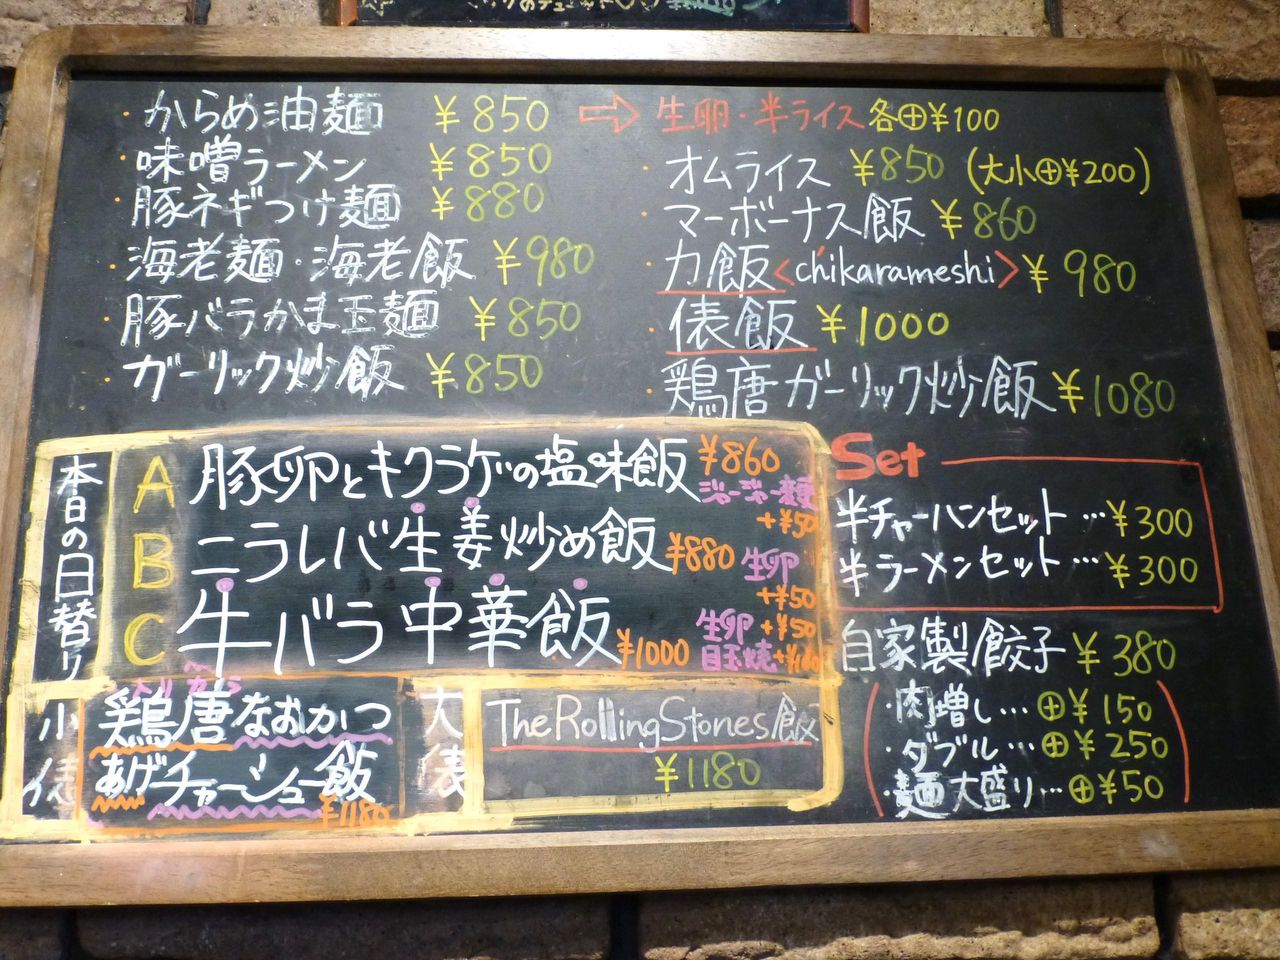 からめ油麺 ¥850 ⇨ 生卵・半ライス各⊕¥100
・味噌ラーメン ¥850
・豚ネギつけ麺 ¥880
・海老麺・海老飯 ¥980
・豚バラかま玉麺 ¥850
・ガーリック炒飯 ¥850
・オムライス ¥850 (大小⊕¥200)
・マーボーナス飯 ¥860
・力飯<chikarameshi> ¥980
・俵飯 ¥1000
・鶏唐ガーリック炒飯 ¥1080
本日の日替り
A 豚卵とキクラゲの塩味飯 ¥860
ジャージャー麺
+¥50
B ニラレバ生姜炒め飯 ¥880 生卵
+¥50
C 牛バラ中華飯 ¥1000 生卵+¥50
目玉焼+¥100
小俵
鶏唐なおかつ
あげチャーシュー飯
¥1180
大俵
The Rolling Stones飯
¥1180
Set
半チャーハンセット…¥300
半ラーメンセット…¥300
自家製餃子 ¥380
・肉増し…⊕¥150
・ダブル…⊕¥250
・麺大盛り…⊕¥50